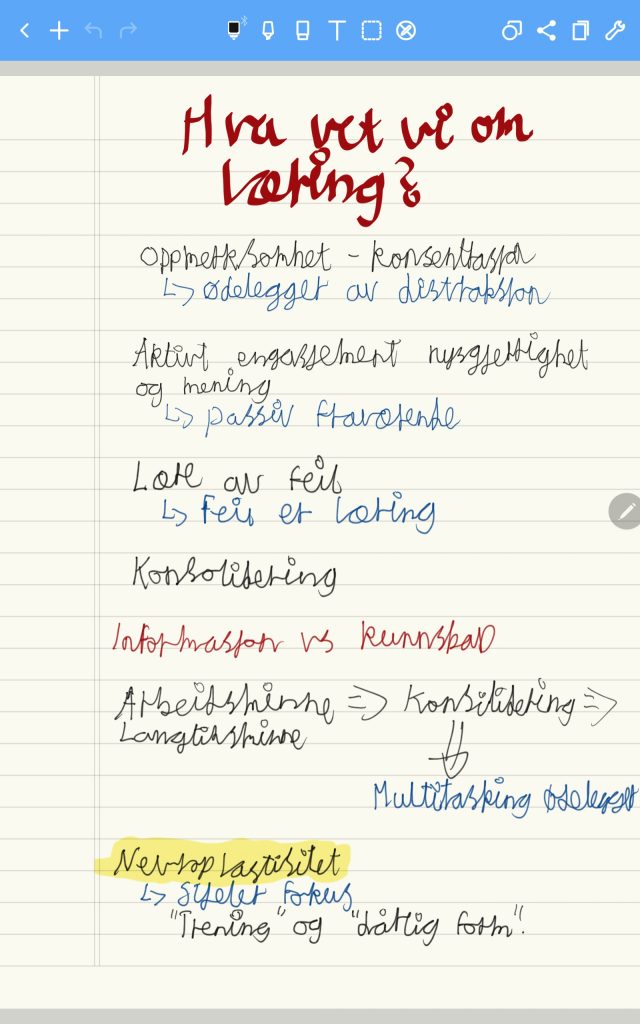 Hva vet vi om
læring?
Oppmerksomhet - konsentrasjon
↳ Ødelegger av distraksjon
Aktivt engasjement nysgjerrighet
og mening
↳ passiv fraværende
Lære av feil
↳ Feil er læring
Konsolidering
Informasjon vs kunnskap
Arbeidsminne => Konsilidering =>
Langtidsminne
Multitasking ødelegger
Nevroplastisitet
↳ Spelet fokus
"Trening" og "dårlig form".